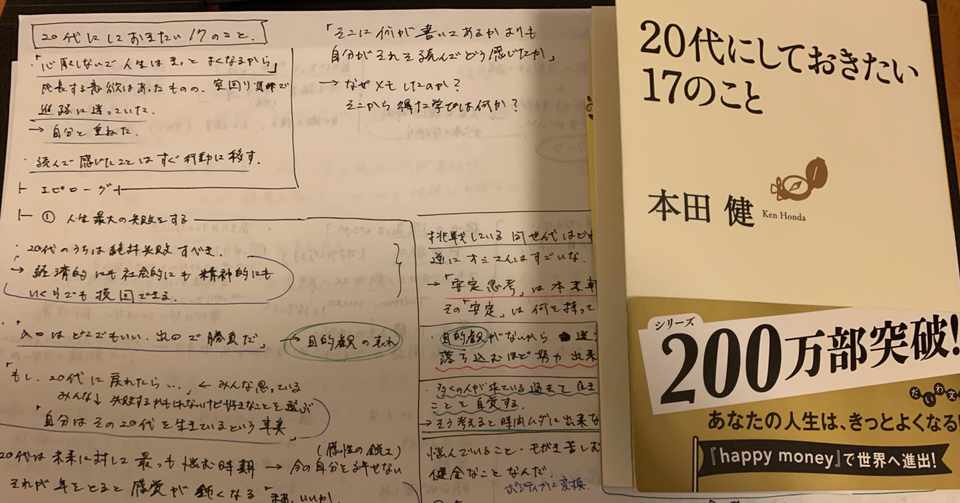 20代にしておきたい17のこと.
・「心配しないで人生はきっとよくなるから」
成長する意欲はあったものの、空回り気味で
進路に迷っていた.
→ 自分と重ねた.
・読んで感じたことはすぐ行動に移す.
エピローグ
「そこに何が書いてあるかよりも
自分がそれを読んでどう感じたか」
→ なぜメモしたのか?
そこから得た学びは何か?
① 人生最大の失敗をする
・20代のうちは絶対失敗すべき.
→ 経済的にも社会的にも精神的にも
いくらでも挽回できる.
・「入口はどこでもいい、出口で勝負だ」 → 目的観の
「もし、20代に戻れたら…」 ← みんな思っている
みんな 失敗するかもしれないけど好きなことを選ぶ
「自分はその20代を生きているという事実」
20代は未来に対して最も悩む時期
→ 今の自分を許せない
それが年をとると感覚が鈍くなる
挑戦している同世代は
逆に
→ 「安定思考」は
その「安定」は何を持って
目的観がないから
落ち込むほど努力出来
多くの人が
ことを自覚する.
→ そう考えると時間ムダに出来な
悩んでいること・もがき苦し
健全なことなんだ.
ポジティブに変換.
20代にしておきたい
17のこと
本田 健
Ken Honda
シリーズ
200万部突破!
だいわ文
あなたの人生は、きっとよくなる
『happy money』で世界へ進出!